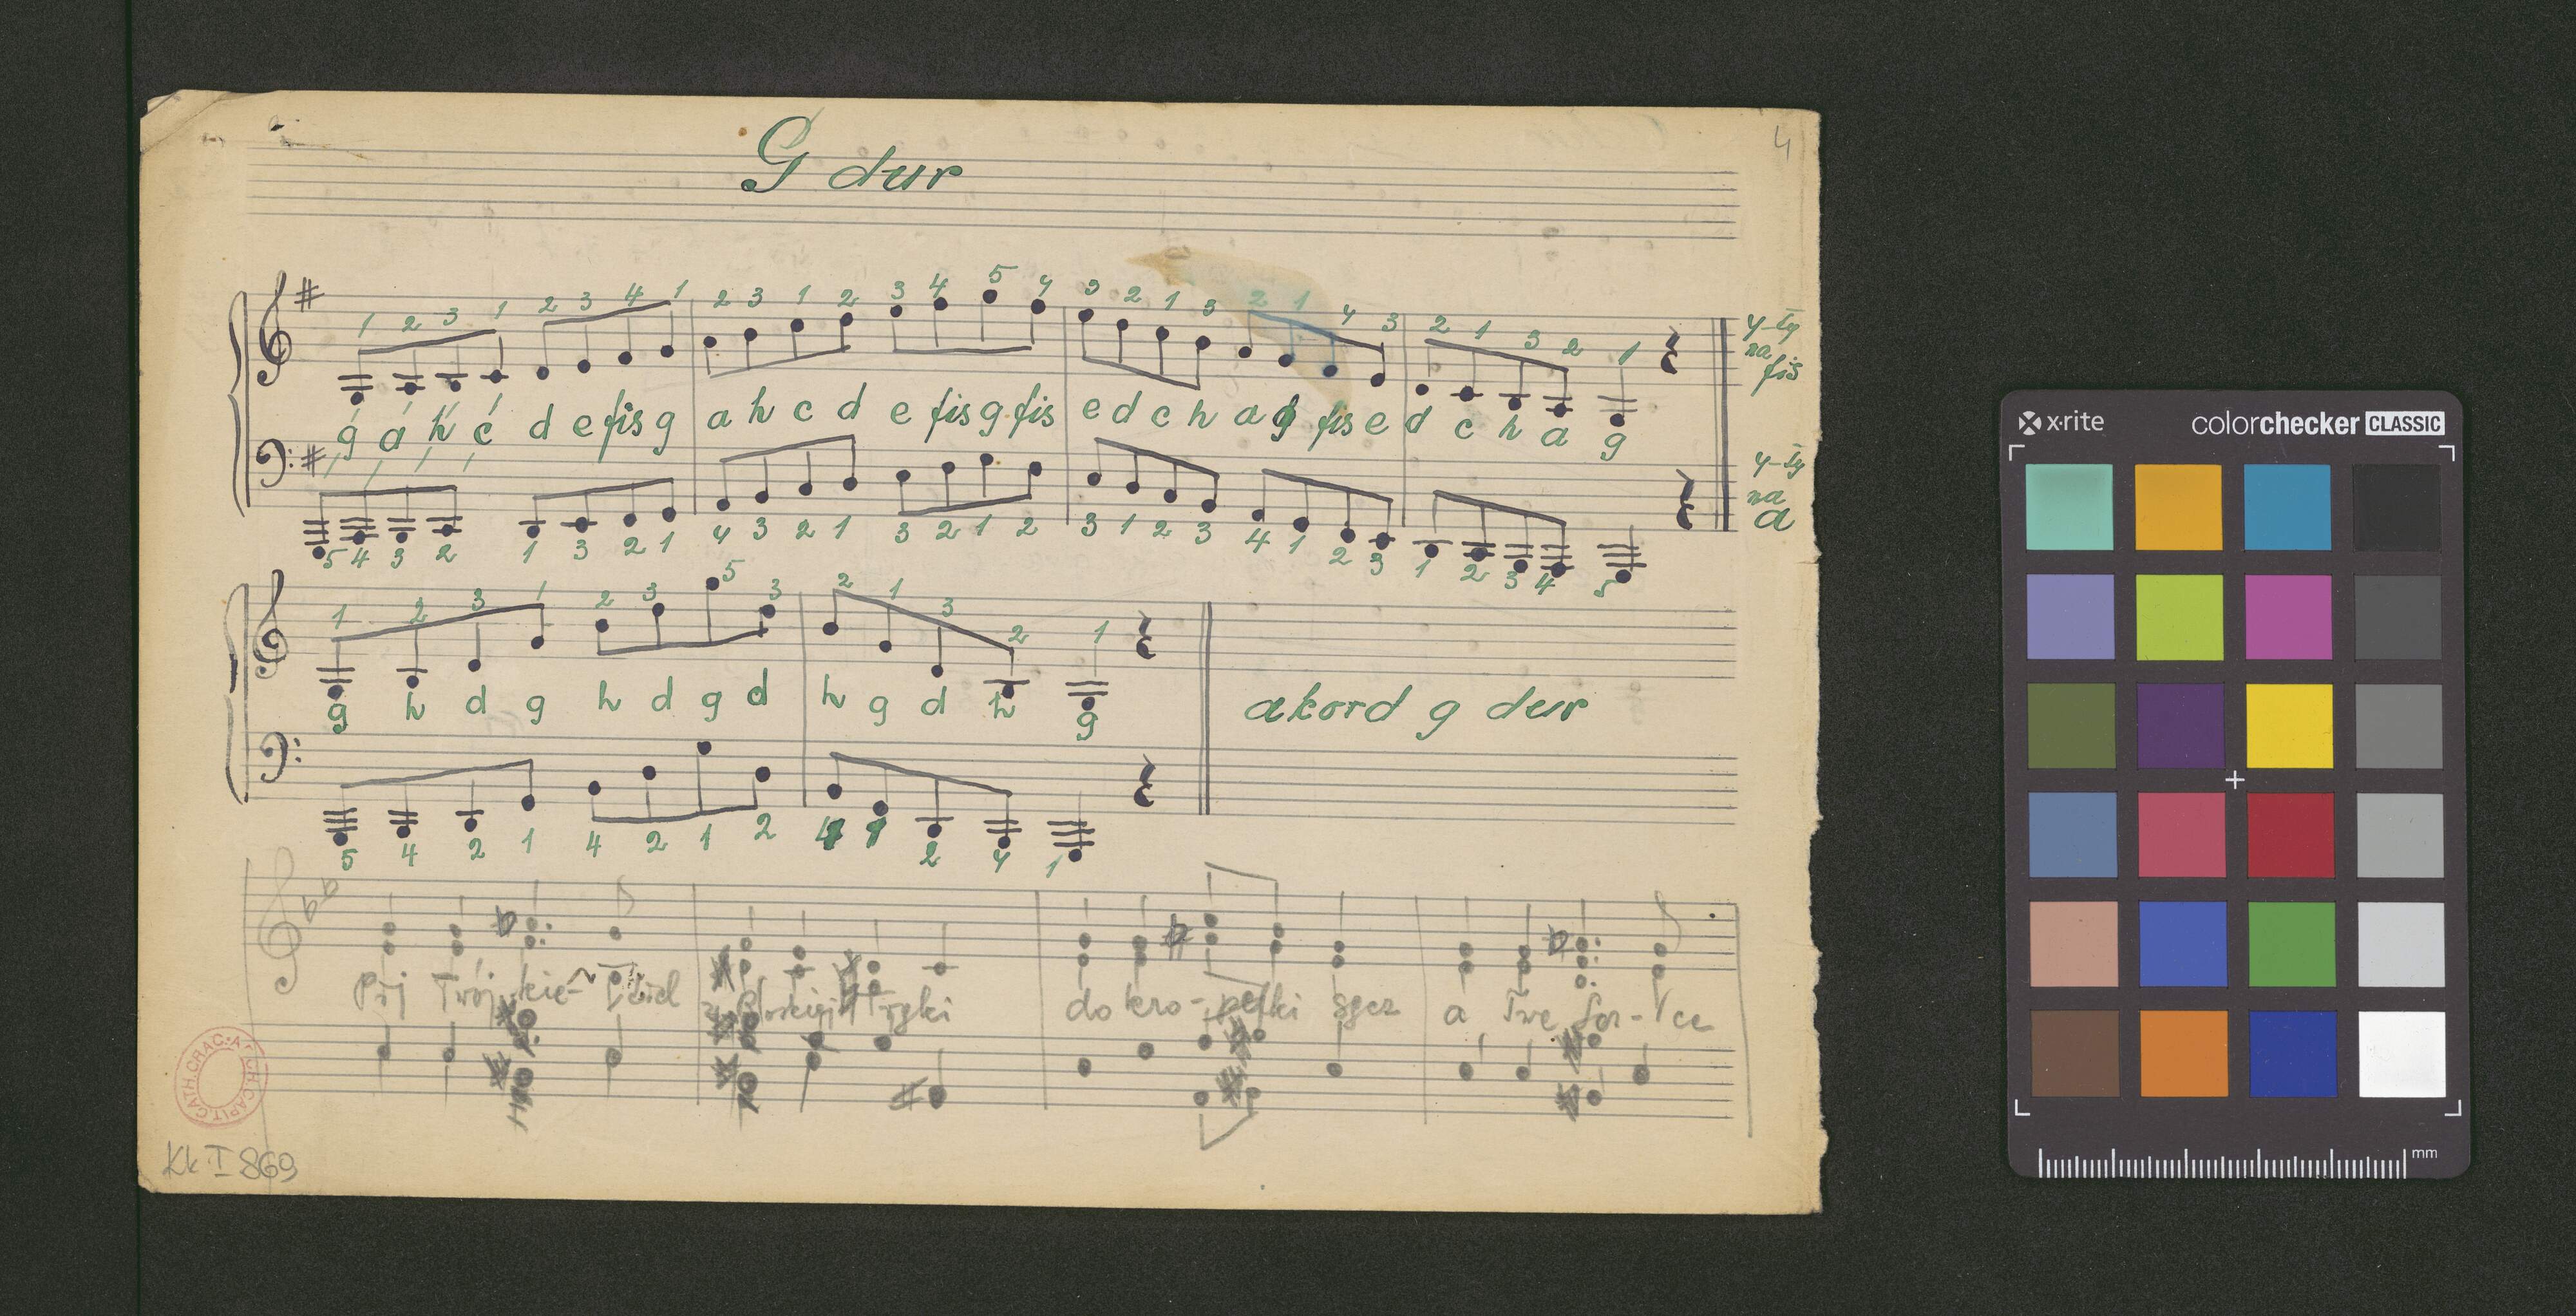 4
G dur
1 2 3 1 2 3 4 1 2 3 1 2 3 4 5 4 3 2 1 3 2 1 4 3 2 1 3 2 1
4-ty
na
fis
g a h c d e fis g a h c d e fis g fis e d c h a g fis e d c h a g
4-ty
na
a
5 4 3 2 1 3 2 1 4 3 2 1 3 2 1 2 3 1 2 3 4 1 2 3 1 2 3 4 5
1 2 3 1 2 3 5 3 2 1 3 2 1
g h d g h d g d h g d h g
akord g dur
5 4 2 1 4 2 1 2 4 1 2 4 1
do kro-pelki sącz a Twe
CATH.CRAC.
Kk I 869
x·rite
colorchecker CLASSIC
mm